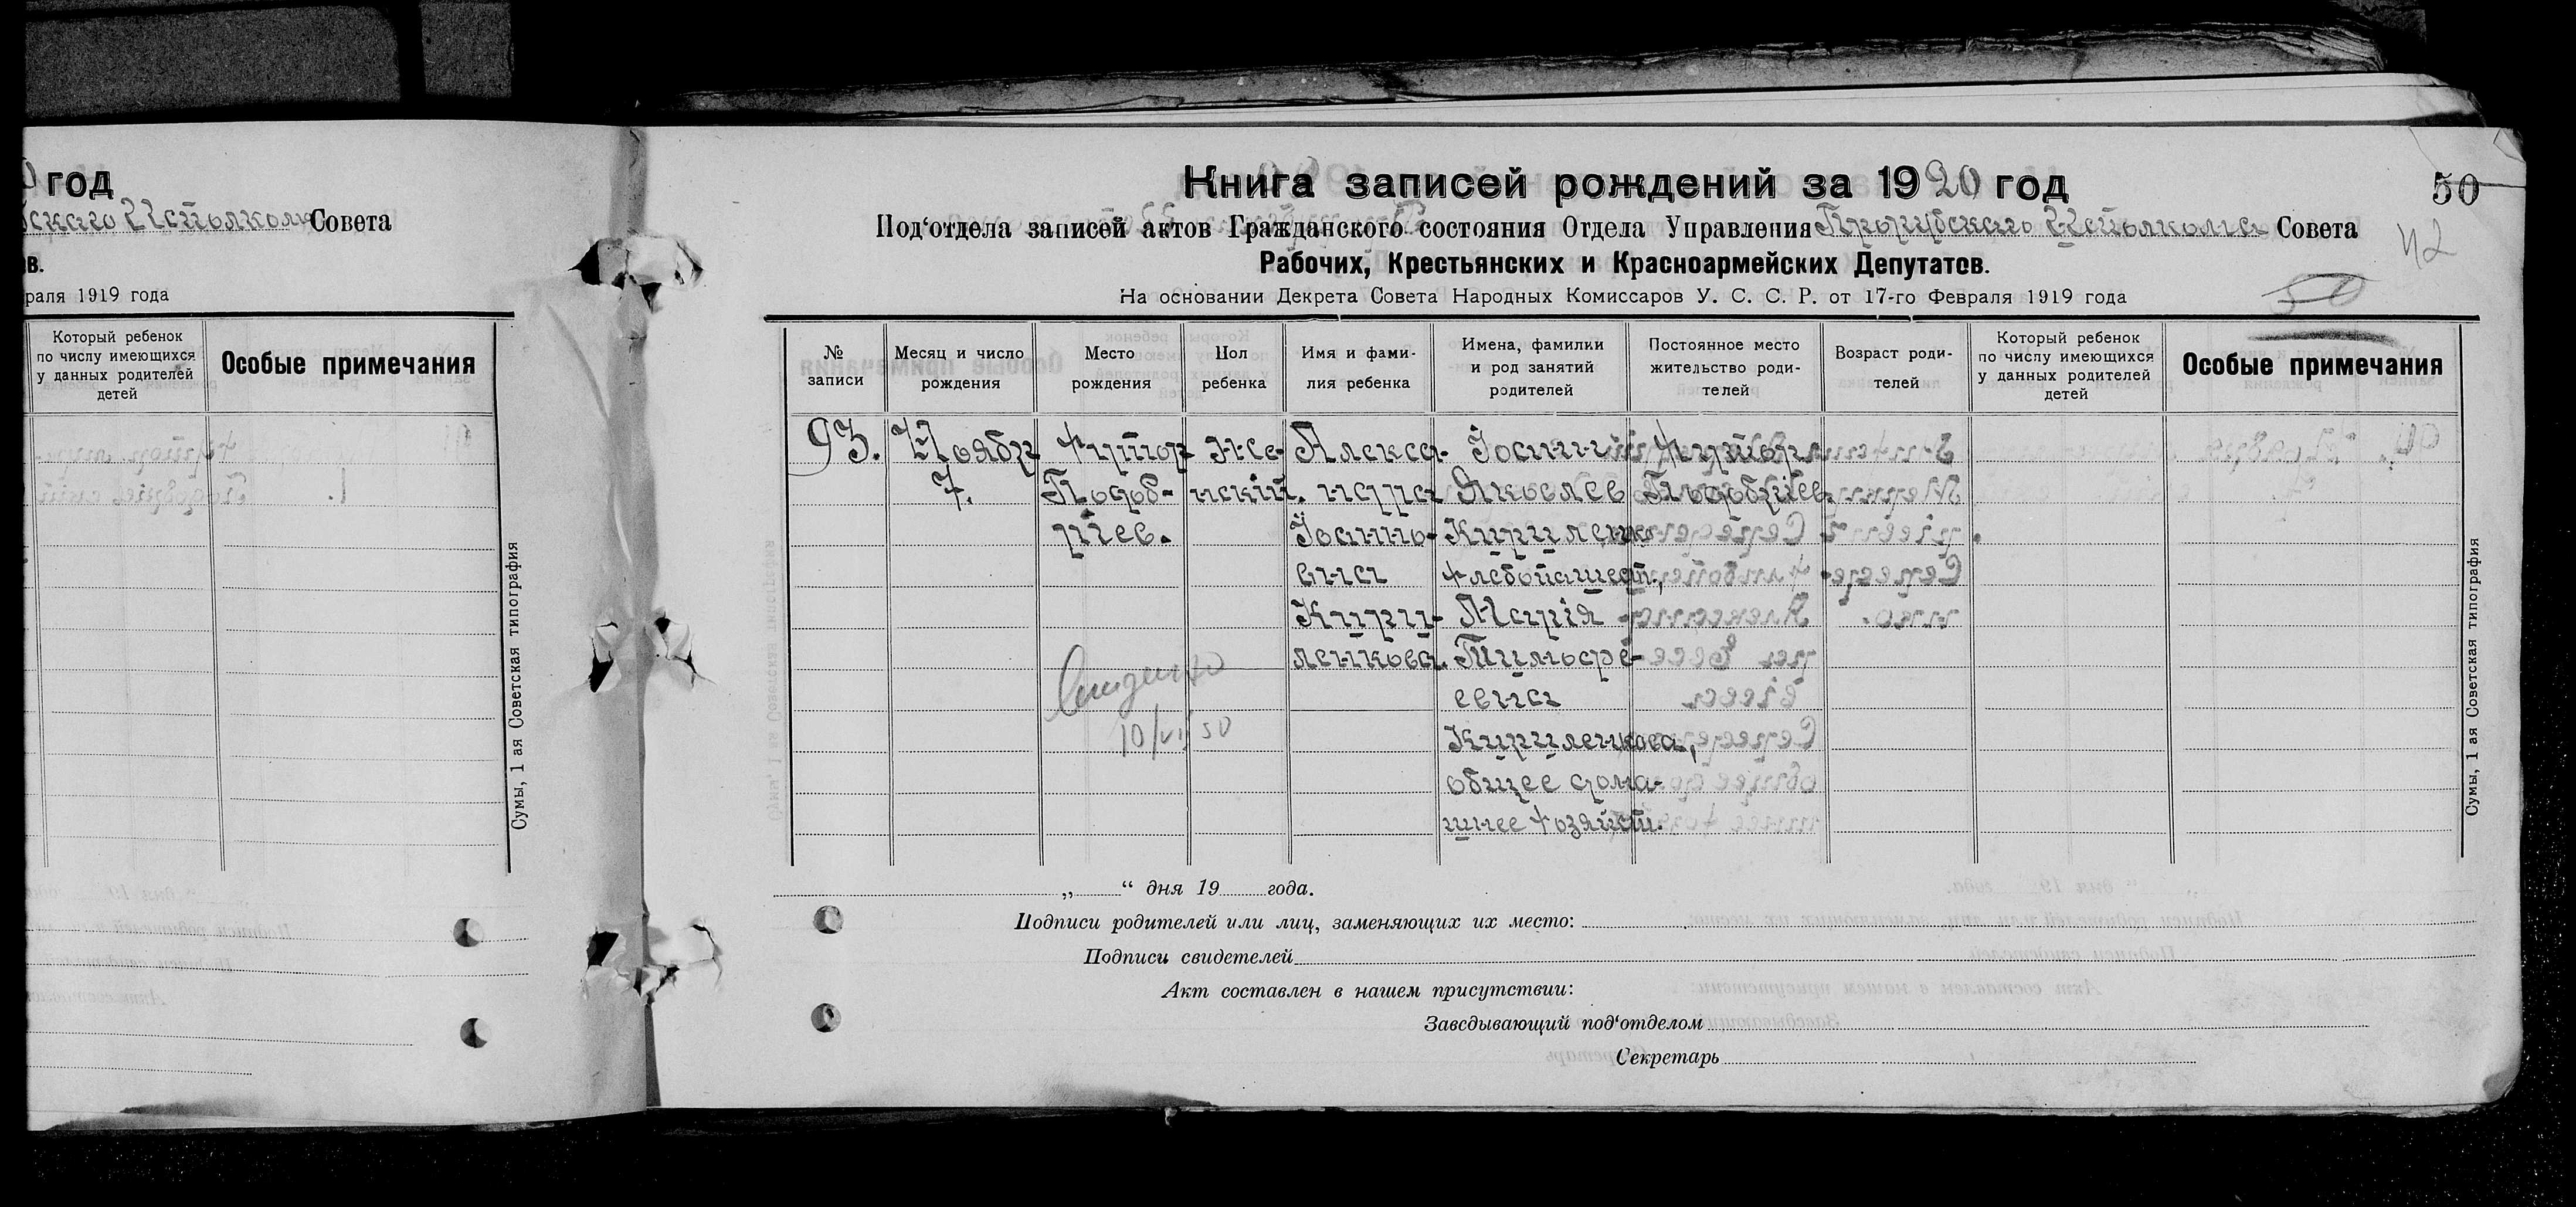 год
Исполкома Совета
в.
раля 1919 года
Который ребенок по числу имеющихся у данных родителей детей
Особые примечания
Сумы, 1 ая Советская типография
Книга записей рождений за 1920 год
50
Под'отдела записей актов Гражданского состояния Отдела Управления Исполкома Совета
42
Рабочих, Крестьянских и Красноармейских Депутатов.
На основании Декрета Совета Народных Комиссаров У. С. С. Р. от 17-го Февраля 1919 года
50
№ записи
Месяц и число рождения
Место рождения
Пол ребенка
Имя и фами- лия ребенка
Имена, фамилии и род занятий родителей
Постоянное место жительство роди- телей
Возраст роди- телей
Который ребенок по числу имеющихся у данных родителей детей
Особые примечания
93.
Ноябр
7.
хутор
Поддб-
ріев.
Же-
нскій.
Алекса-
ндра
Іоанно-
вна
Кири-
ленкова.
Іоанн
Яковлев
Кириленко
хлебопашест.,
Марія
Тимофе-
евна
Кириленкова,
общее дома-
шнее хозяйст.
хутор
10/VII 50
„ “ дня 19 года.
Подписи родителей или лиц, заменяющих их место:
Подписи свидетелей
Акт составлен в нашем присутствии:
Заведывающий под'отделом
Секретарь
Сумы, 1 ая Советская типография